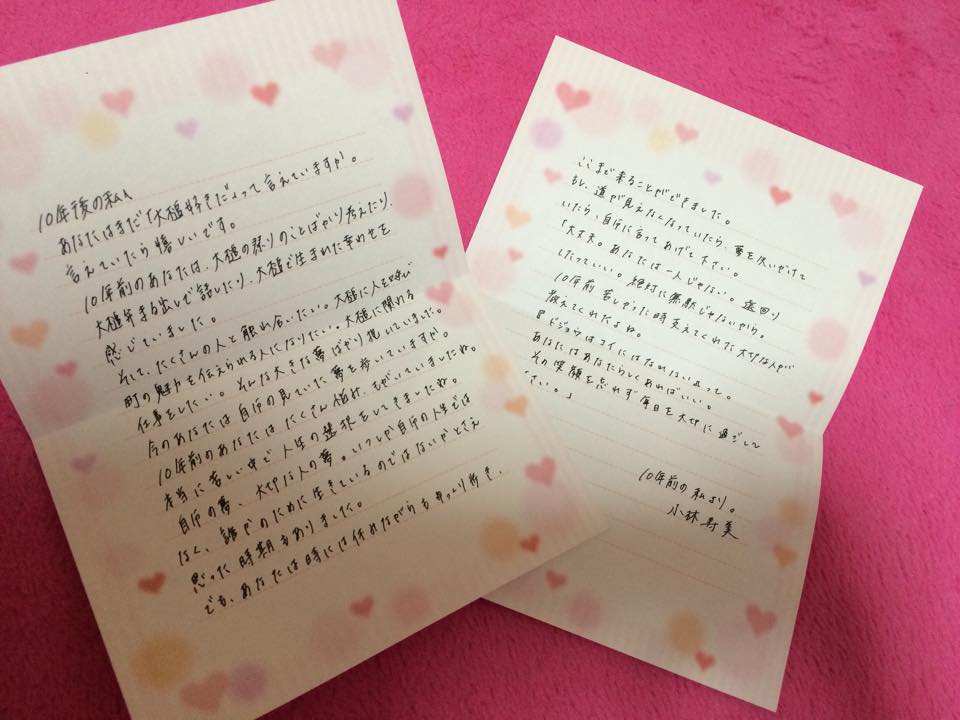 10年後の私へ
あなたはまだ「大槌好きだよ」って言えていますか。
言えていたら嬉しいです。
10年前のあなたは、大槌の祭りのことばかり考えたり、
大槌弁まる出しで話したり、大槌で生まれた幸わせを
感じていました。
そして、たくさんの人と触れ合いたい。大槌に人を呼び
町の魅力を伝えられる人になりたい。大槌に関わる
仕事をしたい。そんな大きな夢ばかり抱いていました。
今のあなたは自分の見ていた夢を歩いていますか。
10年前のあなたはたくさん悩み、もがいていましたね。
本当に苦しい中で人生の選択をしてきましたね。
自分の夢、大切な人の夢。いつしか自分の人生では
なく、誰かのために生きているのではないかとさえ
思った時期もありました。
でも、あなたは時には休みながらもゆっくり歩き、
ここまで来ることができました。
もし、道が見えなくなっていたら、夢を失いかけて
いたら、自分に言ってあげて下さい。
「大丈夫。あなたは一人じゃない。遠回り
したっていい。絶対に無駄じゃないから。
10年前苦しかった時支えてくれた大切な人が
教えてくれたよね。
『ドジョウはコイにはなれない』って。
あなたはあなたらしくあればいい。
その笑顔を忘れず毎日を大切に過ごして
さい。」
10年前の私より。
小林寿美